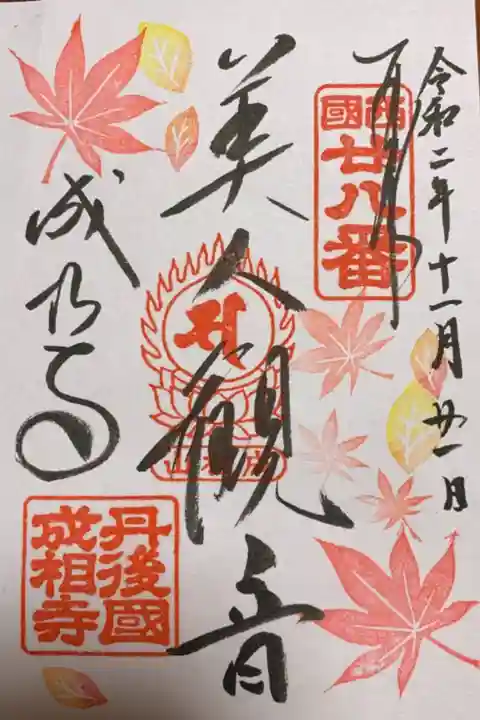 令和二年十一月廿一日
奉拝
西國
廿八番
美人観音
成相山
成相寺
丹後國
成相寺